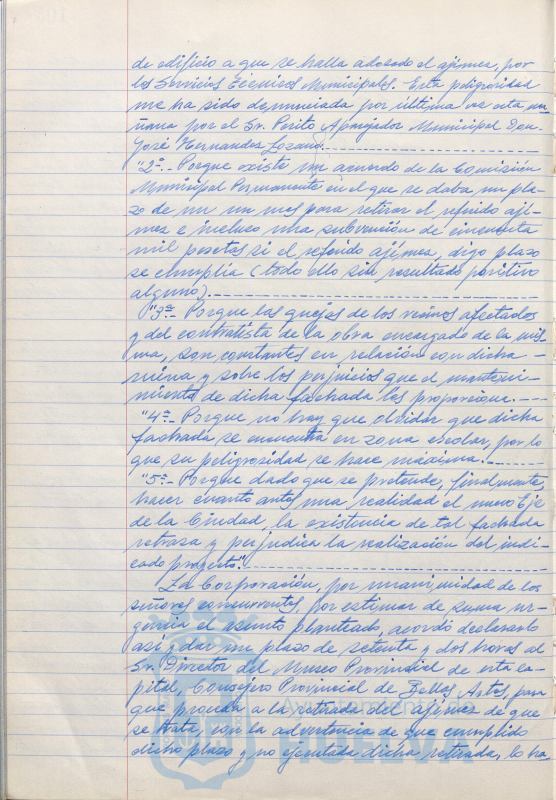 de edificio a que se halla adosado el ajimez, por
los Servicios Técnicos Municipales. Esta peligrosidad
me ha sido denunciada por última vez esta ma-
ñana por el Sr. Perito Aparejador Municipal Don
José Hernandez Lozano.
"2º.- Porque existe un acuerdo de la Comisión
Municipal Permanente en el que se daba un pla-
zo de un mes para retirar el referido aji-
mez e incluso una subvención de cincuenta
mil pesetas si el referido ajimez, digo plazo
se cumplia (todo ello sin resultado positivo
alguno).
"3ª.- Porque las quejas de los vecinos afectados
y del contratista de la obra encargado de la mis-
ma, son constantes en relación con dicha
ruina y sobre los perjuicios que el manteni-
miento de dicha fachada les proporcione.
"4ª.- Porque no hay que olvidar que dicha
fachada se encuentra en zona escolar, por lo
que su peligrosidad se hace máxima.
"5ª.- Porque dado que se pretende, finalmente,
hacer cuanto antes una realidad el nuevo Eje
de la Ciudad, la existencia de tal fachada
retrasa y perjudica la realización del indi-
cado proyecto".
La Corporación, por unanimidad de los
señores concurrentes, por estimar de suma ur-
gencia el asunto planteado, acordó declararlo
así y dar un plazo de setenta y dos horas al
Sr. Director del Museo Provincial de esta ca-
pital, Consejero Provincial de Bellas Artes, para
que proceda a la retirada del ajimez de que
se trata, con la advertencia de que cumplido
dicho plazo y no ejecutada dicha retirada, lo ha